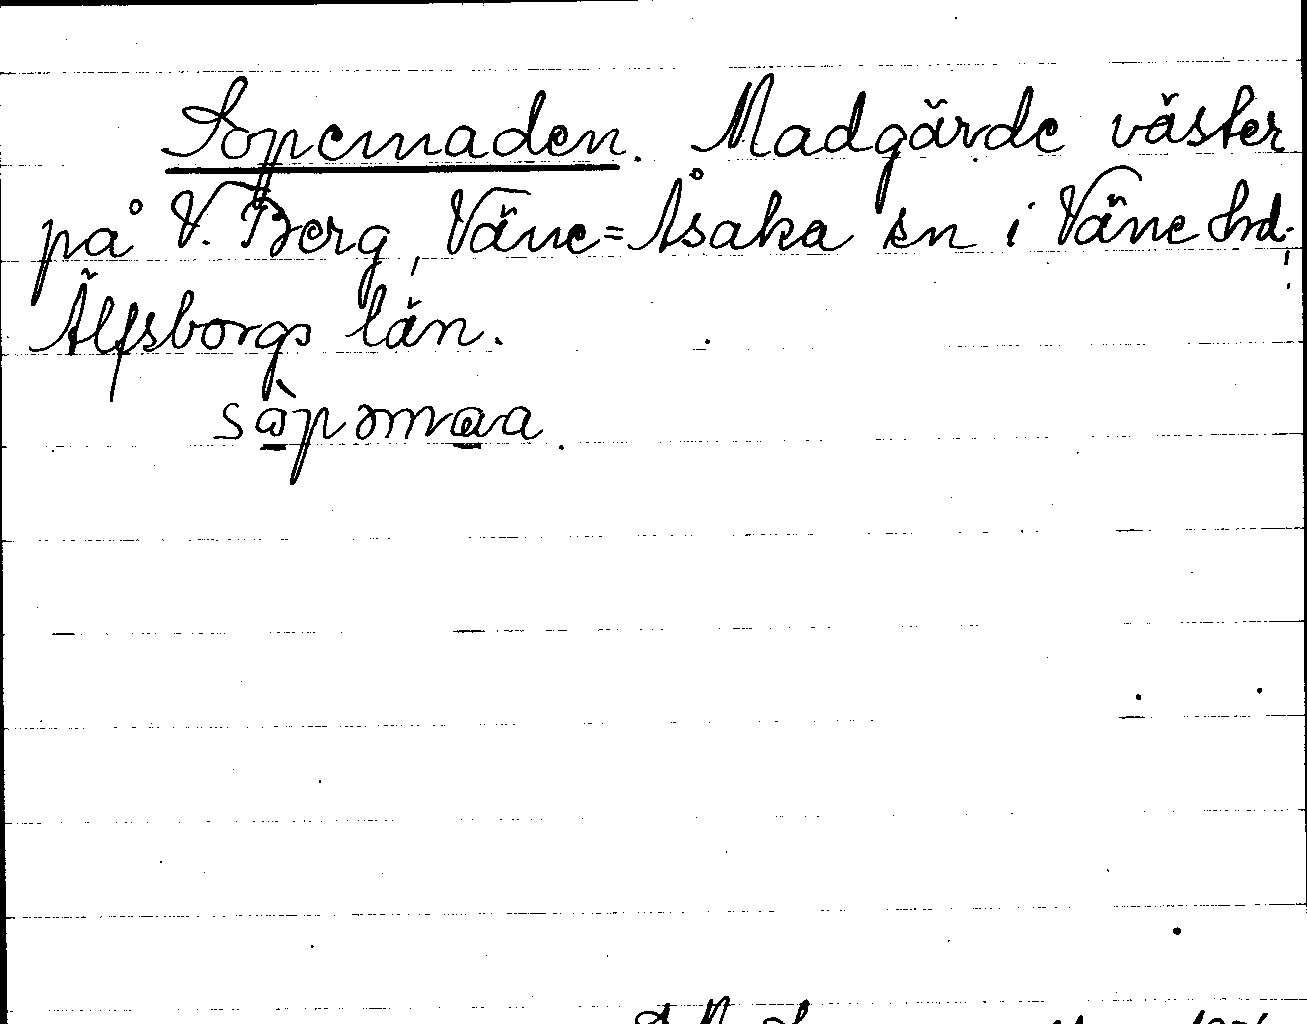 Sopemaden. Madgärde väster
på V. Berg, Väne=Åsaka sn i Väne hd,
Älfsborgs län.
sɷ̀pəmɷa.